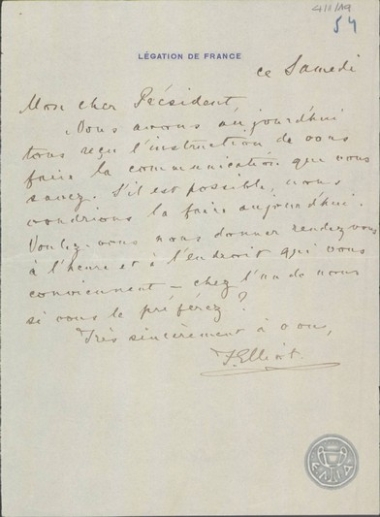 4/1/19
54
LÉGATION DE FRANCE
ce Samedi
Mon cher Président,
Nous avons aujourd'hui
tous reçu l'instruction de vous
faire la communication que vous
savez. S'il est possible, nous
voudrions la faire aujourd'hui.
Voulez-vous nous donner rendez-vous
à l'heure et à l'endroit qui vous
conviennent — chez l'un de nous
si vous le préférez ?
Très sincèrement à vous,
F. Elliot.
Ε.Λ.Ι.Α